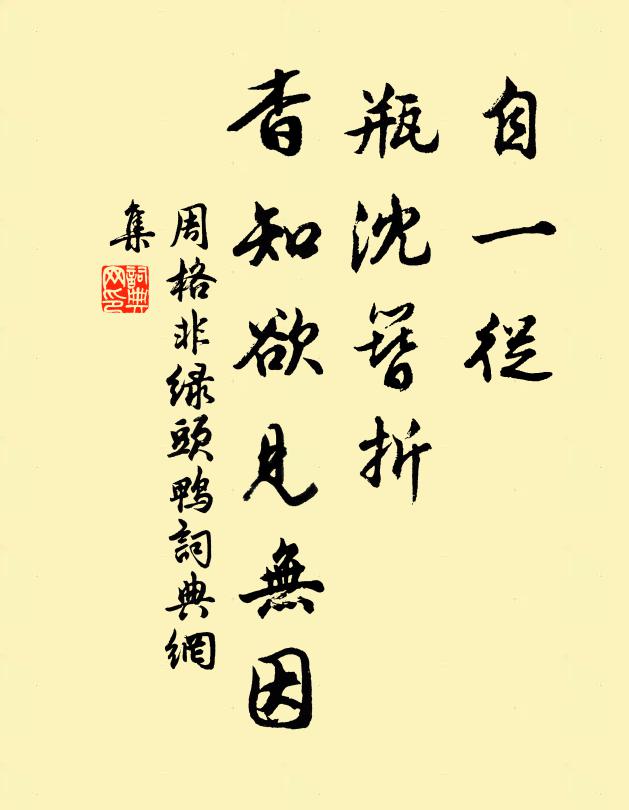 自一從
瓶沈簪折
杳知欲見無因
周格非绿頭鴨詞典網
集
詞典
网印